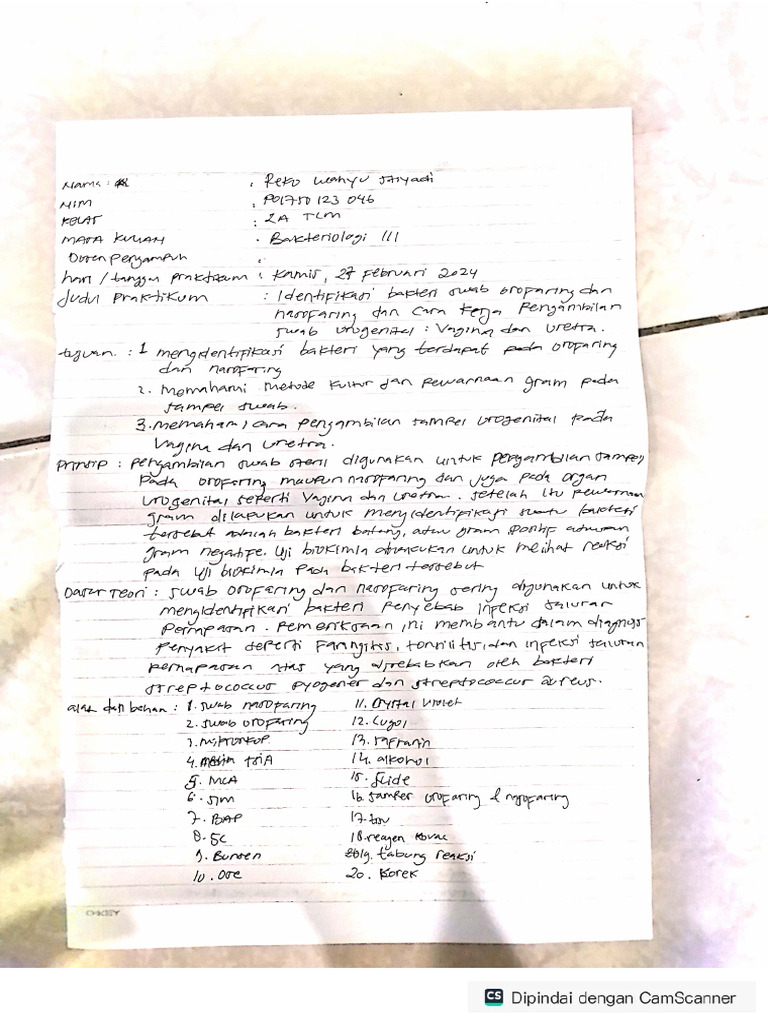 Nama : : Reko Wahyu Setyadi
NIM : PO1750 123 046
KELAS : 2A TLM
MATA KULIAH : Bakteriologi III
Dosen Pengampuh :
hari / tanggal praktikum : Kamis, 27 Februari 2024
Judul Praktikum : Identifikasi bakteri swab orofaring dan
nasofaring dan cara kerja Pengambilan
swab urogenital : Vagina dan uretra.
tujuan : 1 mengidentifikasi bakteri yang terdapat pada orofaring
dan nasofaring
2. Memahami metode kultur dan pewarnaan gram pada
sampel swab.
3. memahami cara pengambilan sampel urogenital pada
Vagina dan uretra.
Prinsip : Pengambilan swab steril digunakan untuk pengambilan sampel
Pada orofaring maupun nasofaring dan juga pada organ
Urogenital seperti Vagina dan uretra. setelah itu pewarnaan
gram dilakukan untuk mengidentifikasi suatu bakteri
tersebut adalah bakteri batang, atau gram positif ataupun
gram negatife. Uji biokimia dilakukan untuk melihat reaksi
pada Uji biokimia Pada bakteri tersebut
Dasar Teori : swab orofaring dan nasofaring sering digunakan untuk
mengidentifikasi bakteri Penyebab infeksi saluran
Pernapasan. Pemeriksaan ini membantu dalam diagnosis
Penyakit seperti Faringitis, tonsilitis, dan infeksi saluran
pernapasan atas yang disebabkan oleh bakteri
streptococcus pyogenes dan streptococcus aureus.
alat dan bahan : 1. swab nasofaring 11. Crystal Violet
2. swab orofaring 12. Lugol
3. Mikroskop 13. safranin
4. TSIA 14. alkohol
5. MCA 15. slide
6. SIM 16. sampel orofaring & nasofaring
7. BAP 17.
8. SC 18. reagen kovac
9. Bunsen 19. tabung reaksi
10. Ose 20. Korek
OKEY
CS Dipindai dengan CamScanner